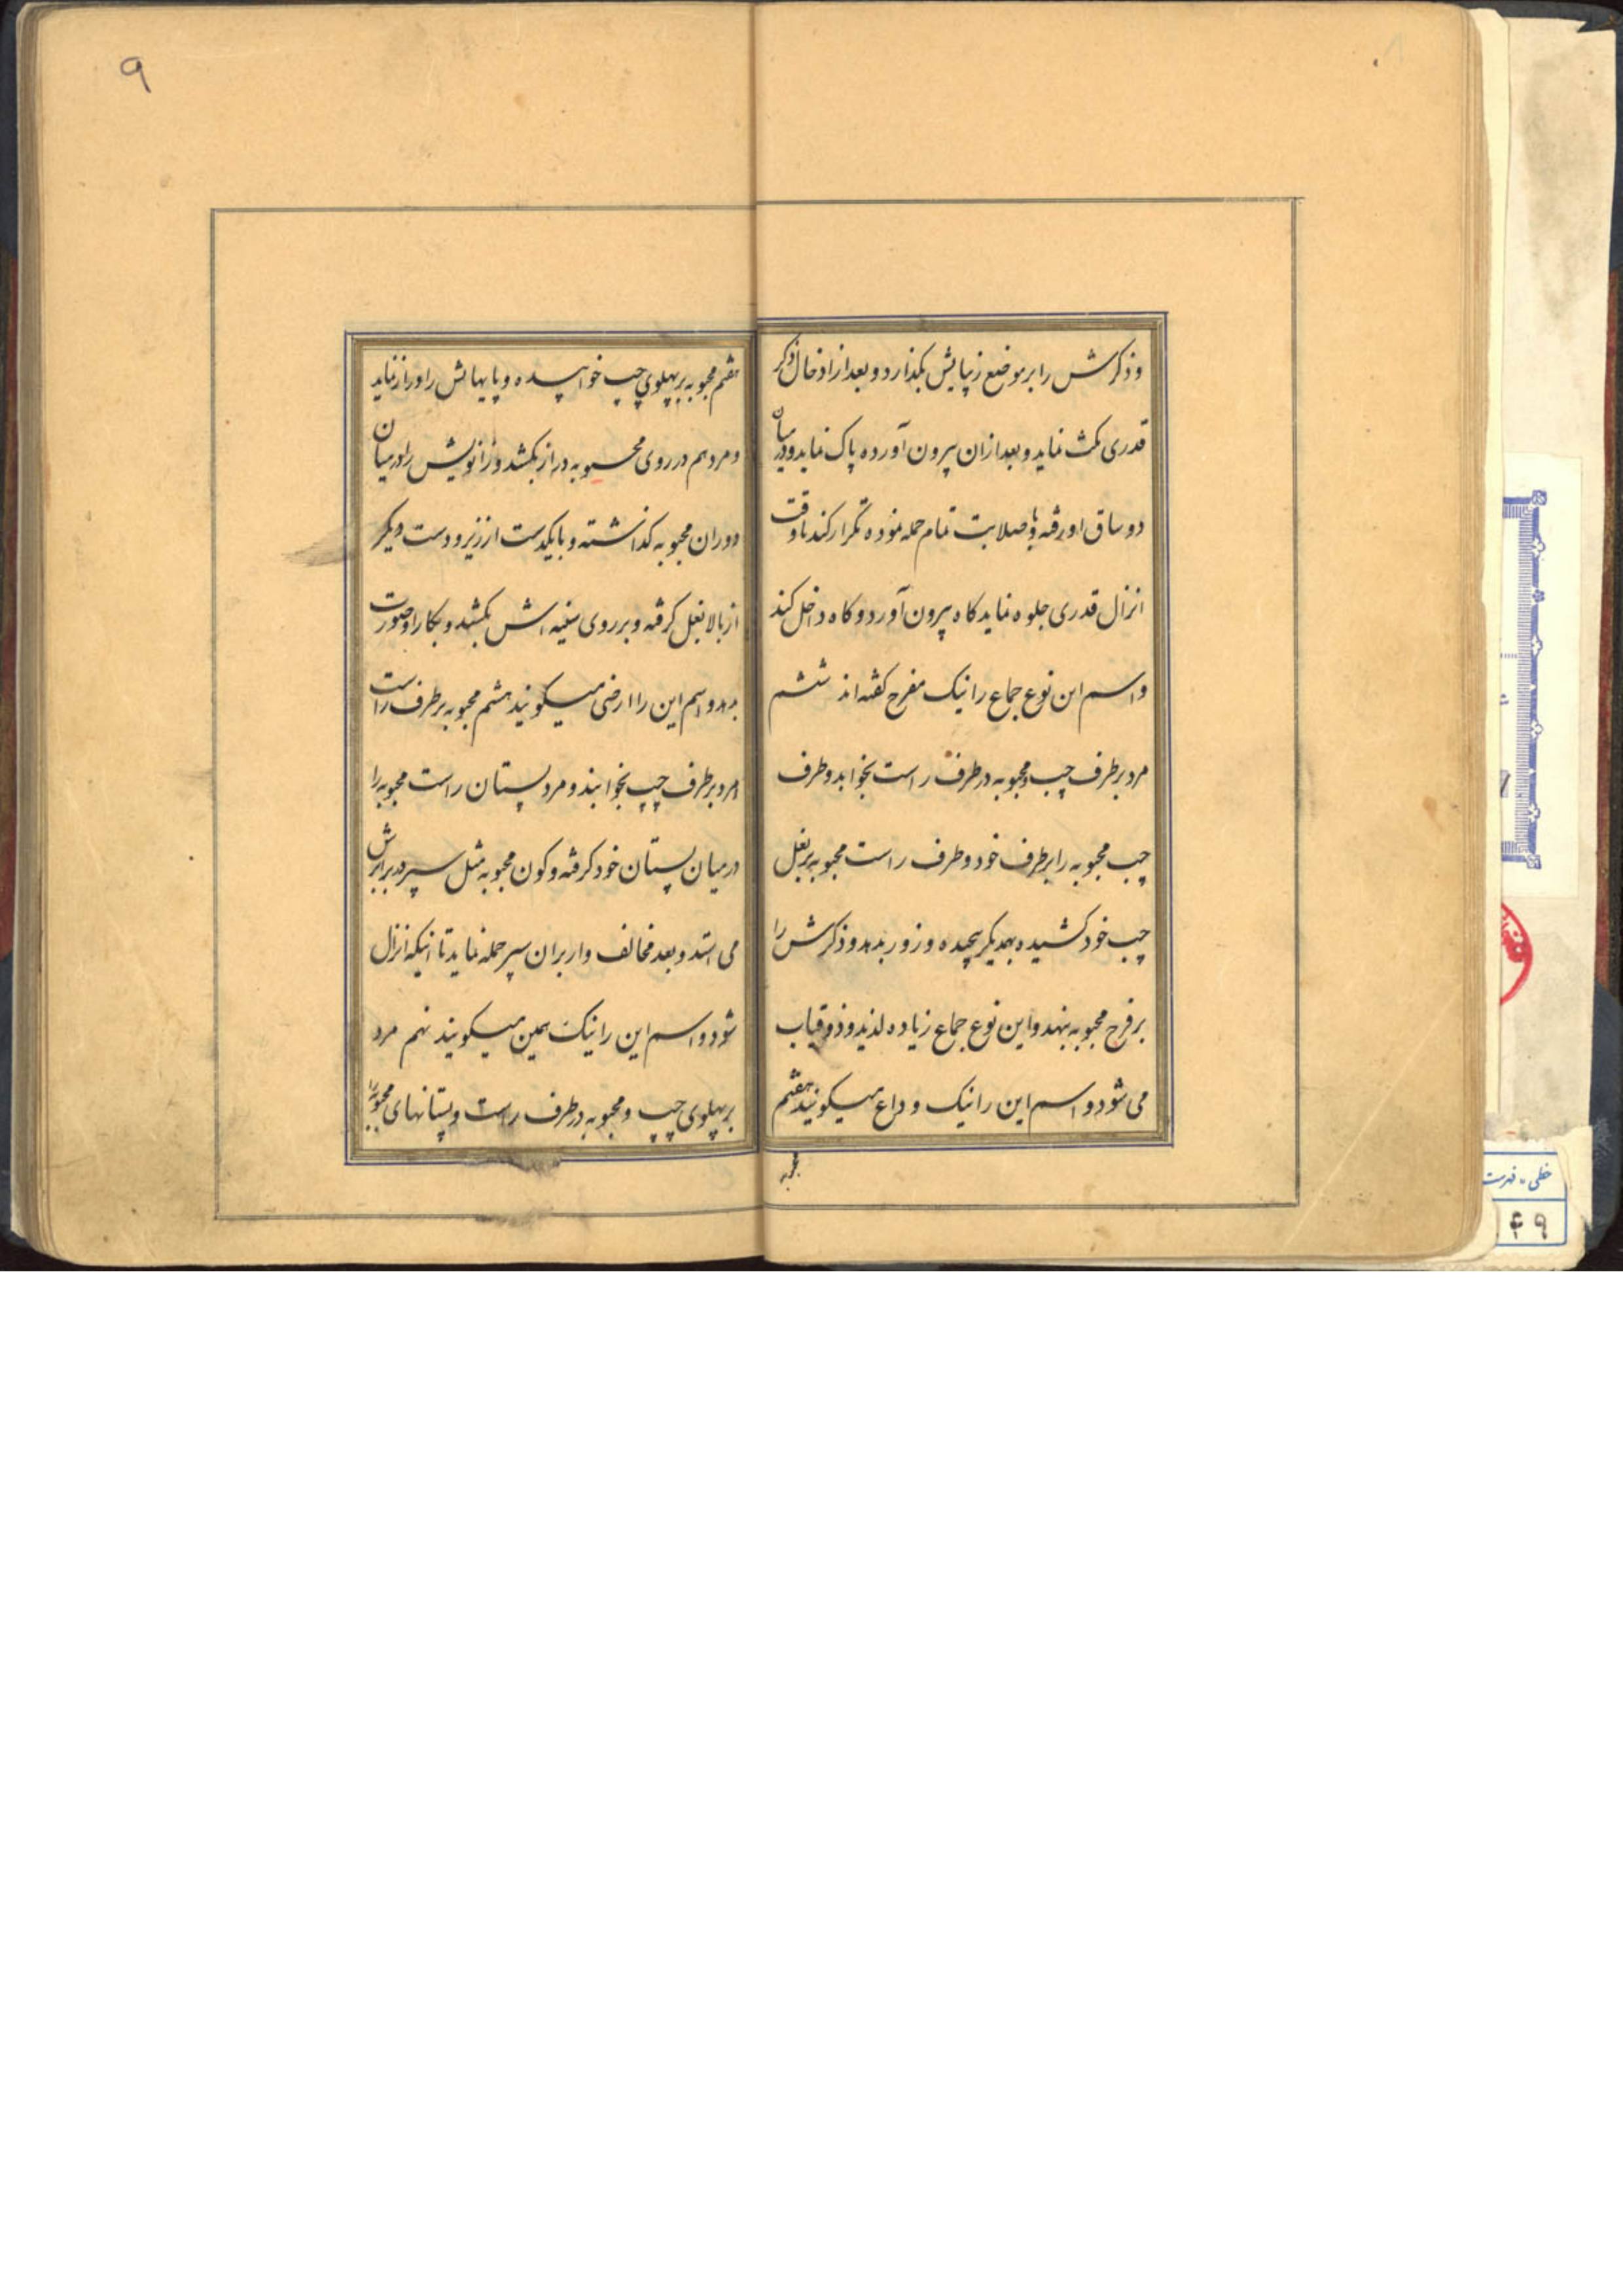 وذکرش را بر موضع زیبایش بگذارد و بعد از ادخال ذکر
قدری مکث نماید و بعد ازان بیرون آورده پاک نماید و در میان
دو ساق او رفته و با صلابت تمام حمله نموده تکرار کند تا وقت
انزال قدری جلوه نماید کاه بیرون آورد و کاه داخل کند
و اسم این نوع جماع را نیک مفرح کفته اند ششم
مرد بر طرف چپ و محبوبه در طرف راست بخوابد و طرف
چپ محبوبه را بر طرف خود و طرف راست محبوبه بر بغل
چپ خود کشیده بهمدیکر پیچیده و زور بدهد و ذکرش را
بر فرج محبوبه بنهد و این نوع جماع زیاده لذیذ و ذوقیاب
می شود و اسم این را نیک وداع میکویند هفتم
محبوبه
۹
هفتم محبوبه بر پهلوی چپ خوابیده و پایهایش را دراز نماید
و مرد هم در روی محبوبه دراز بکشد و زانویش را در میان
دوران محبوبه کذاشته و با یکدست از زیر و دست دیکر
از بالا بغل کرفته و بر روی سینه اش بکشد و بکار او صورت
بدهد و اسم این را ارضی میکویند هشتم محبوبه بر طرف راست
و مرد بر طرف چپ بخوابند و مرد پستان راست محبوبه را
در میان پستان خود کرفته و کون محبوبه مثل سپر در برابرش
می استد و بعد مخالف وار بران سپر حمله نماید تا اینکه انزال
شود و اسم این را نیک یمین میکویند نهم مرد
بر پهلوی چپ و محبوبه در طرف راست و پستانهای محبوبه را
خطی - فهرست
۴۹